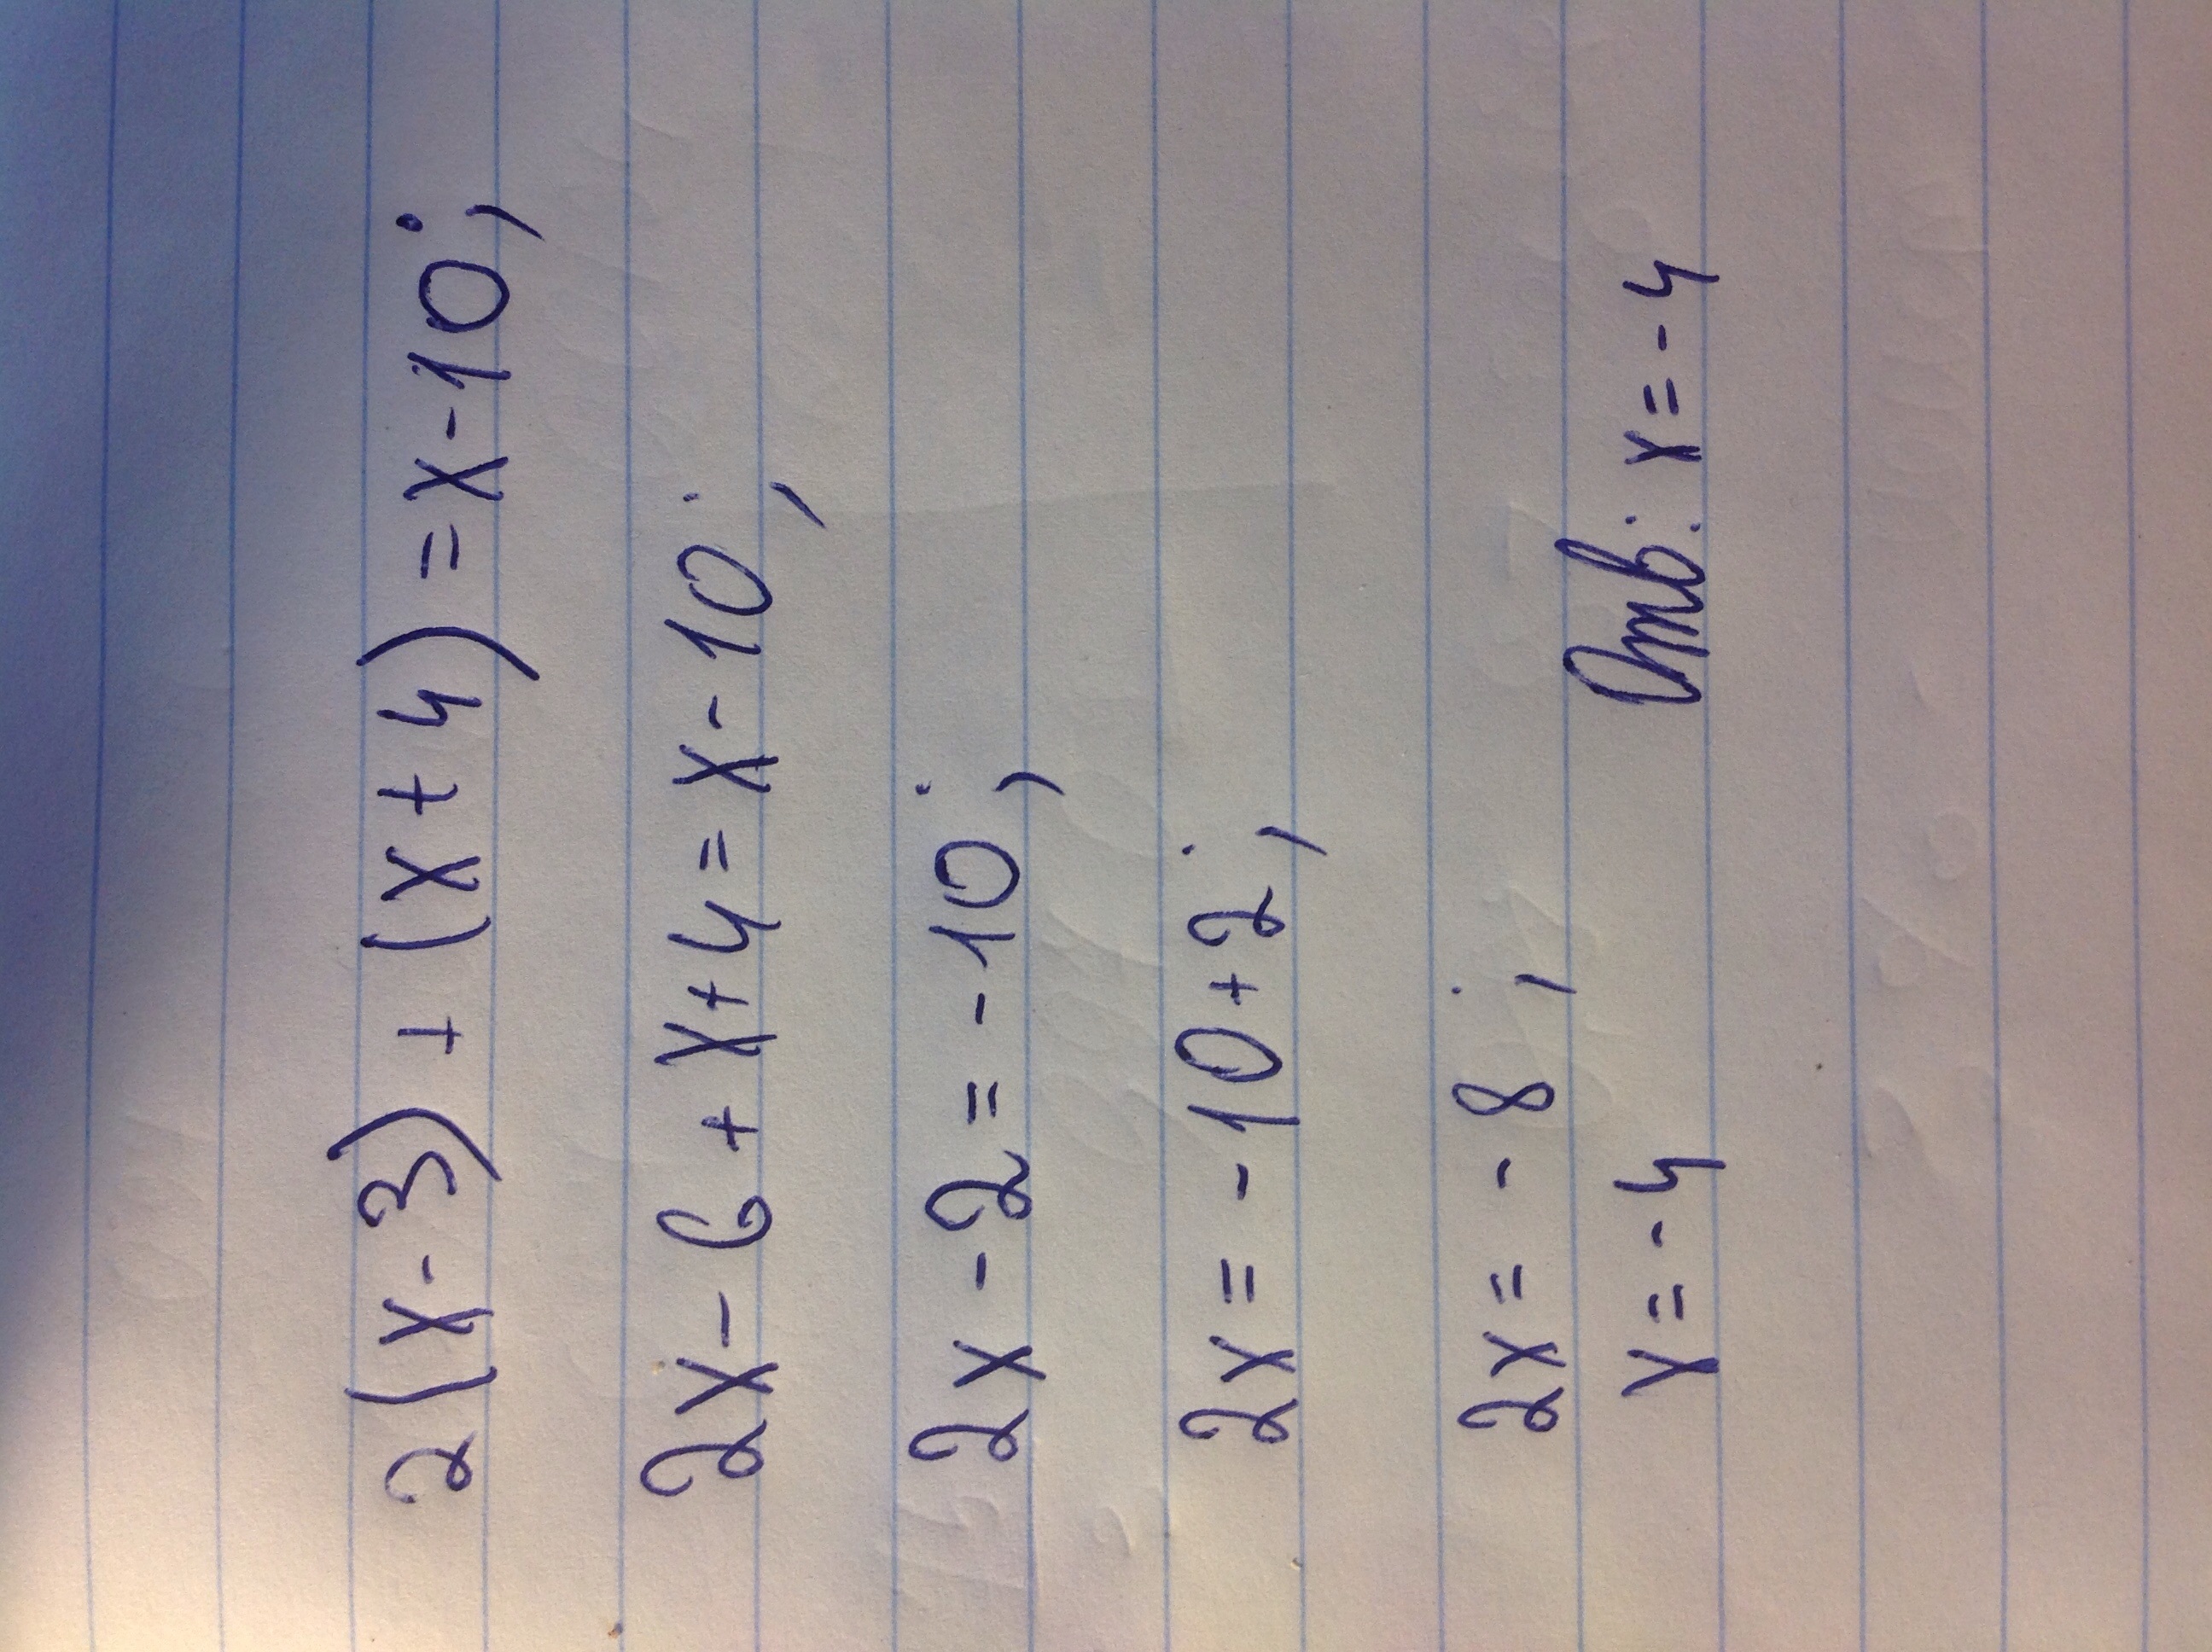 2(x-3) + (x+4) = x-10;
2x-6+x+4=x-10;
2x-2=-10;
2x=-10+2;
2x=-8;
x=-4 Отв: x=-4